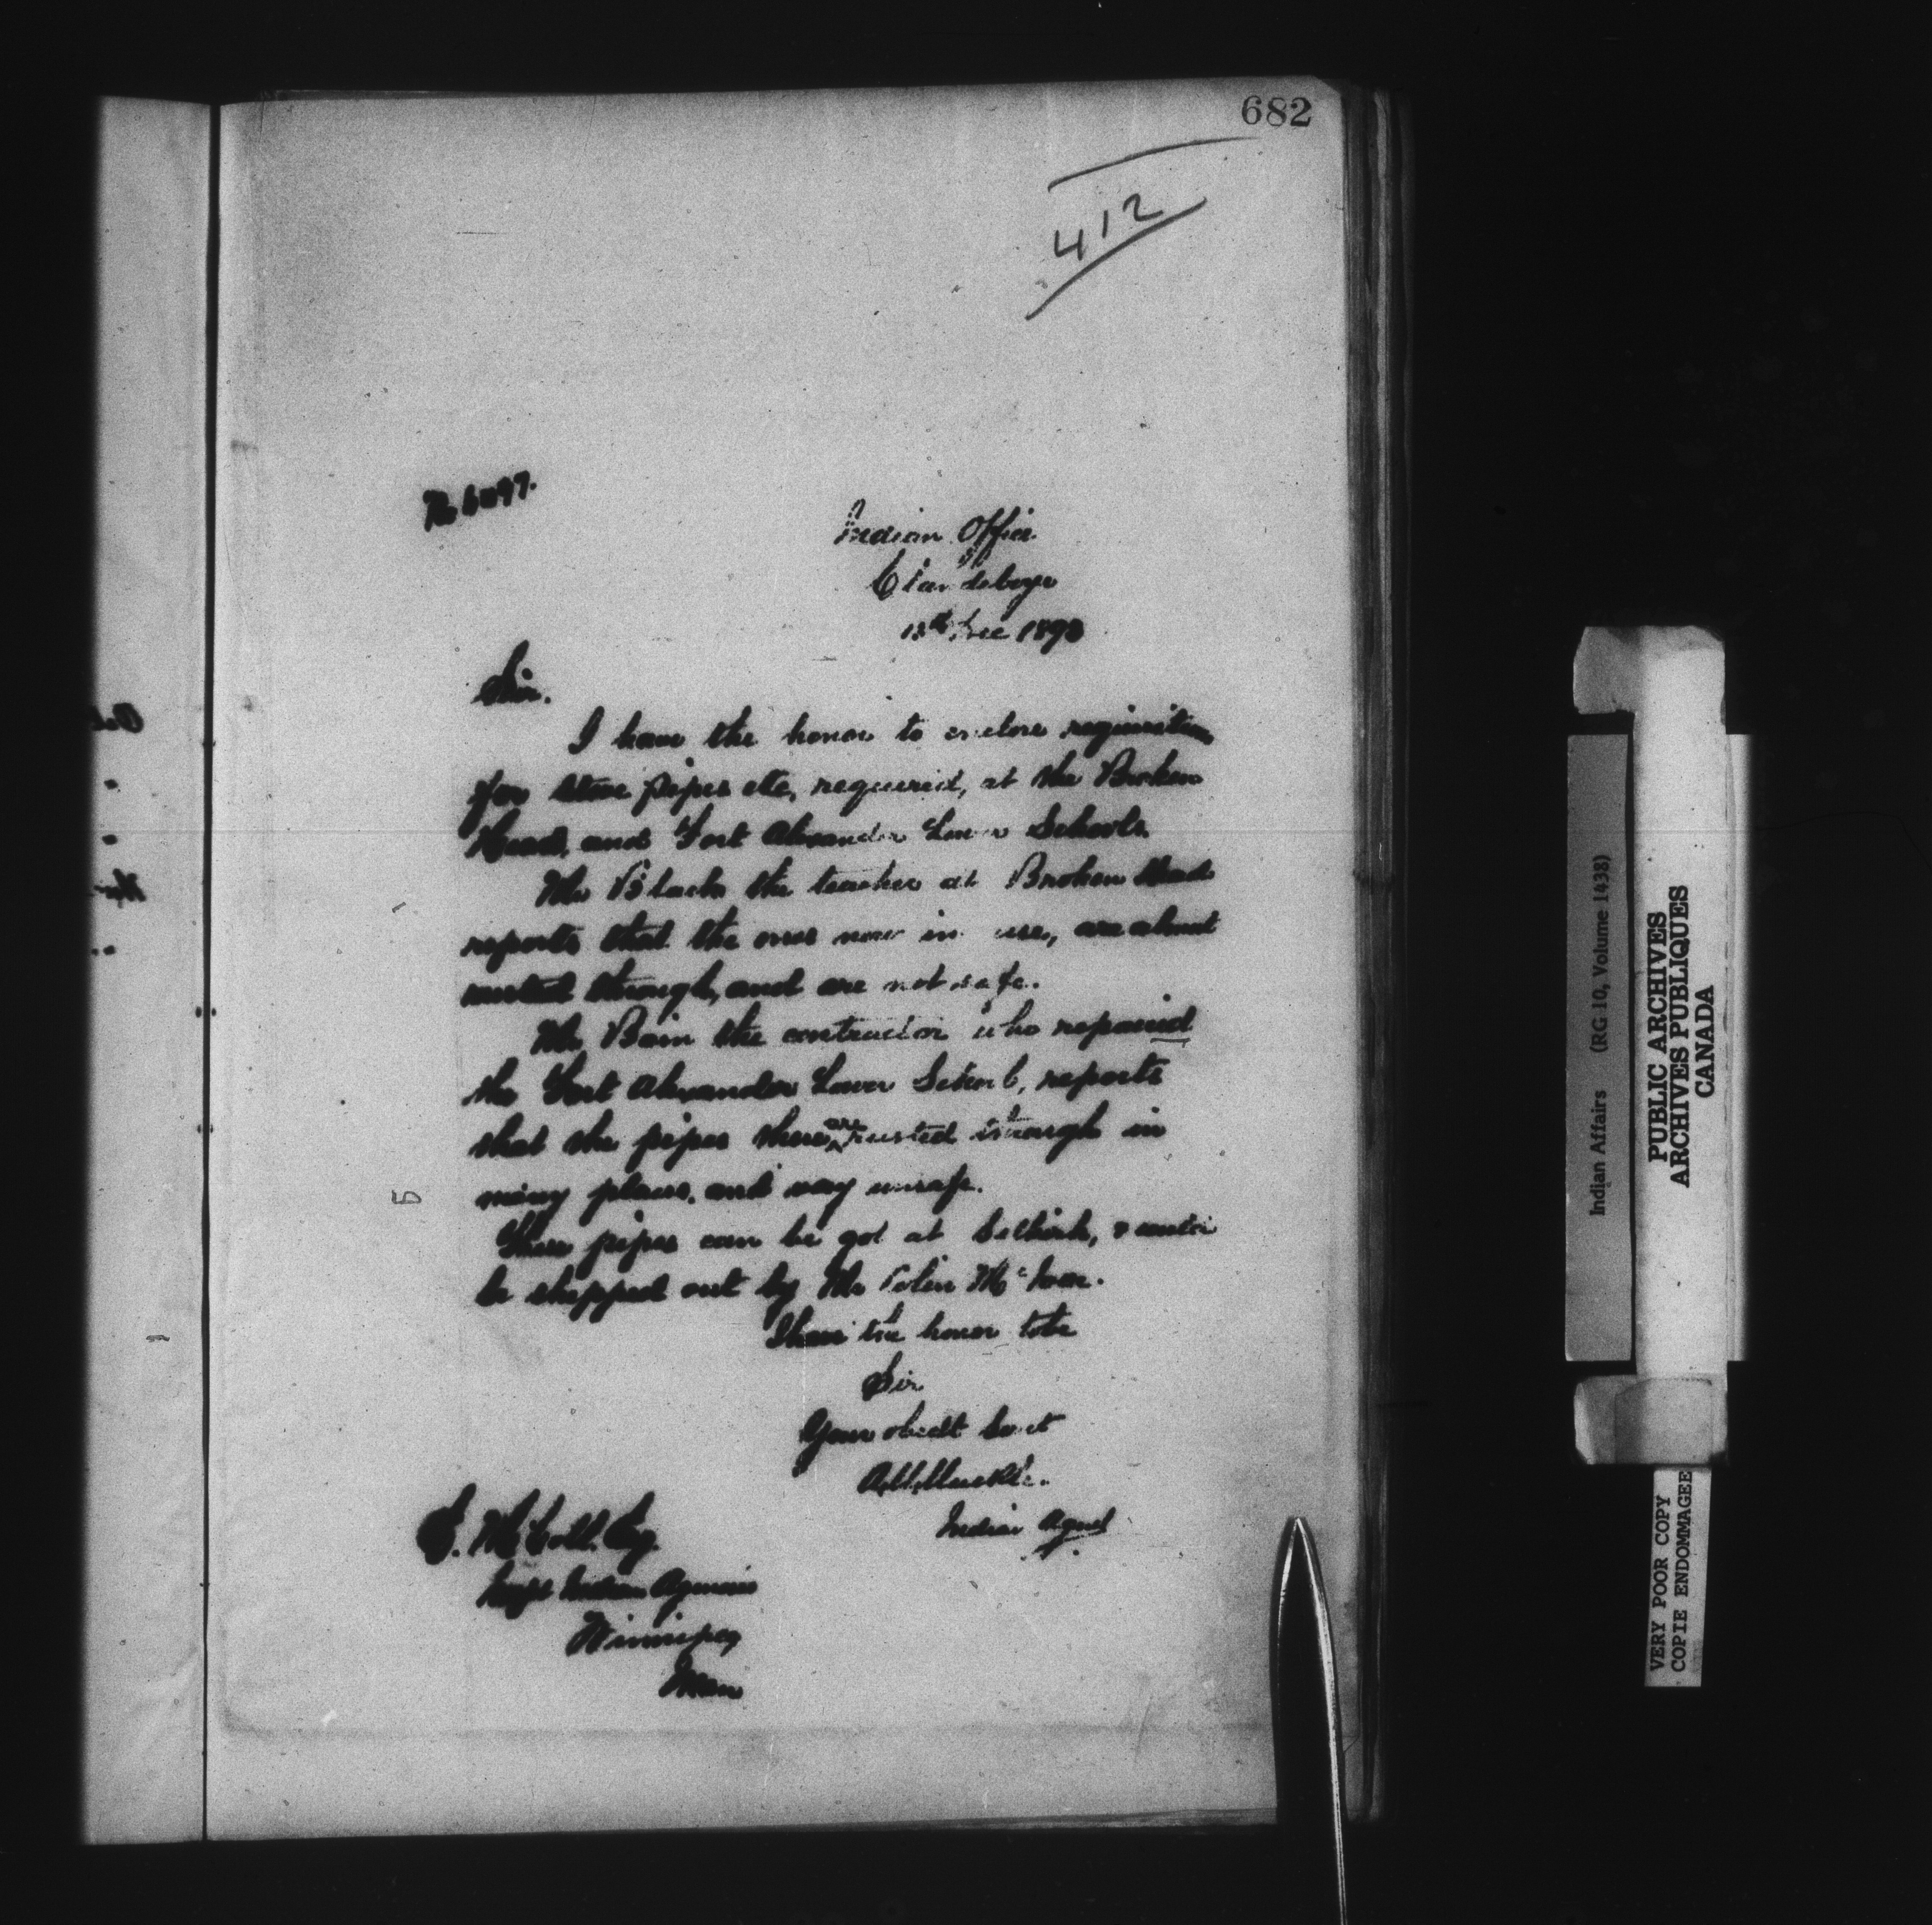 682
412
Indian Office
Clandeboye
Dec 1890
Sir.
I have the honor to enclose requisition
for stove pipes etc, required, at the Broken
Head, and Fort Alexander Lower Schools.
Mr Black the teacher at Broken Head
reports that the ones now in use, are about
rusted through, and are not safe.
Mr Bain the contractor who repaired
the Fort Alexander Lower School, reports
that the pipes there are rusted through in
many places, and very unsafe.
These pipes can be got at Selkirk, &
be shipped out by Mr Colin
I have the honor to be
Sir
Your obedt Servt
A.M. Muckle.
Indian Agent
E. McColl. Esq.
Inspt Indian Agencies
Winnipeg
Man
Indian Affairs (RG 10, Volume 1438)
PUBLIC ARCHIVES
ARCHIVES PUBLIQUES
CANADA
VERY POOR COPY
COPIE ENDOMMAGEE